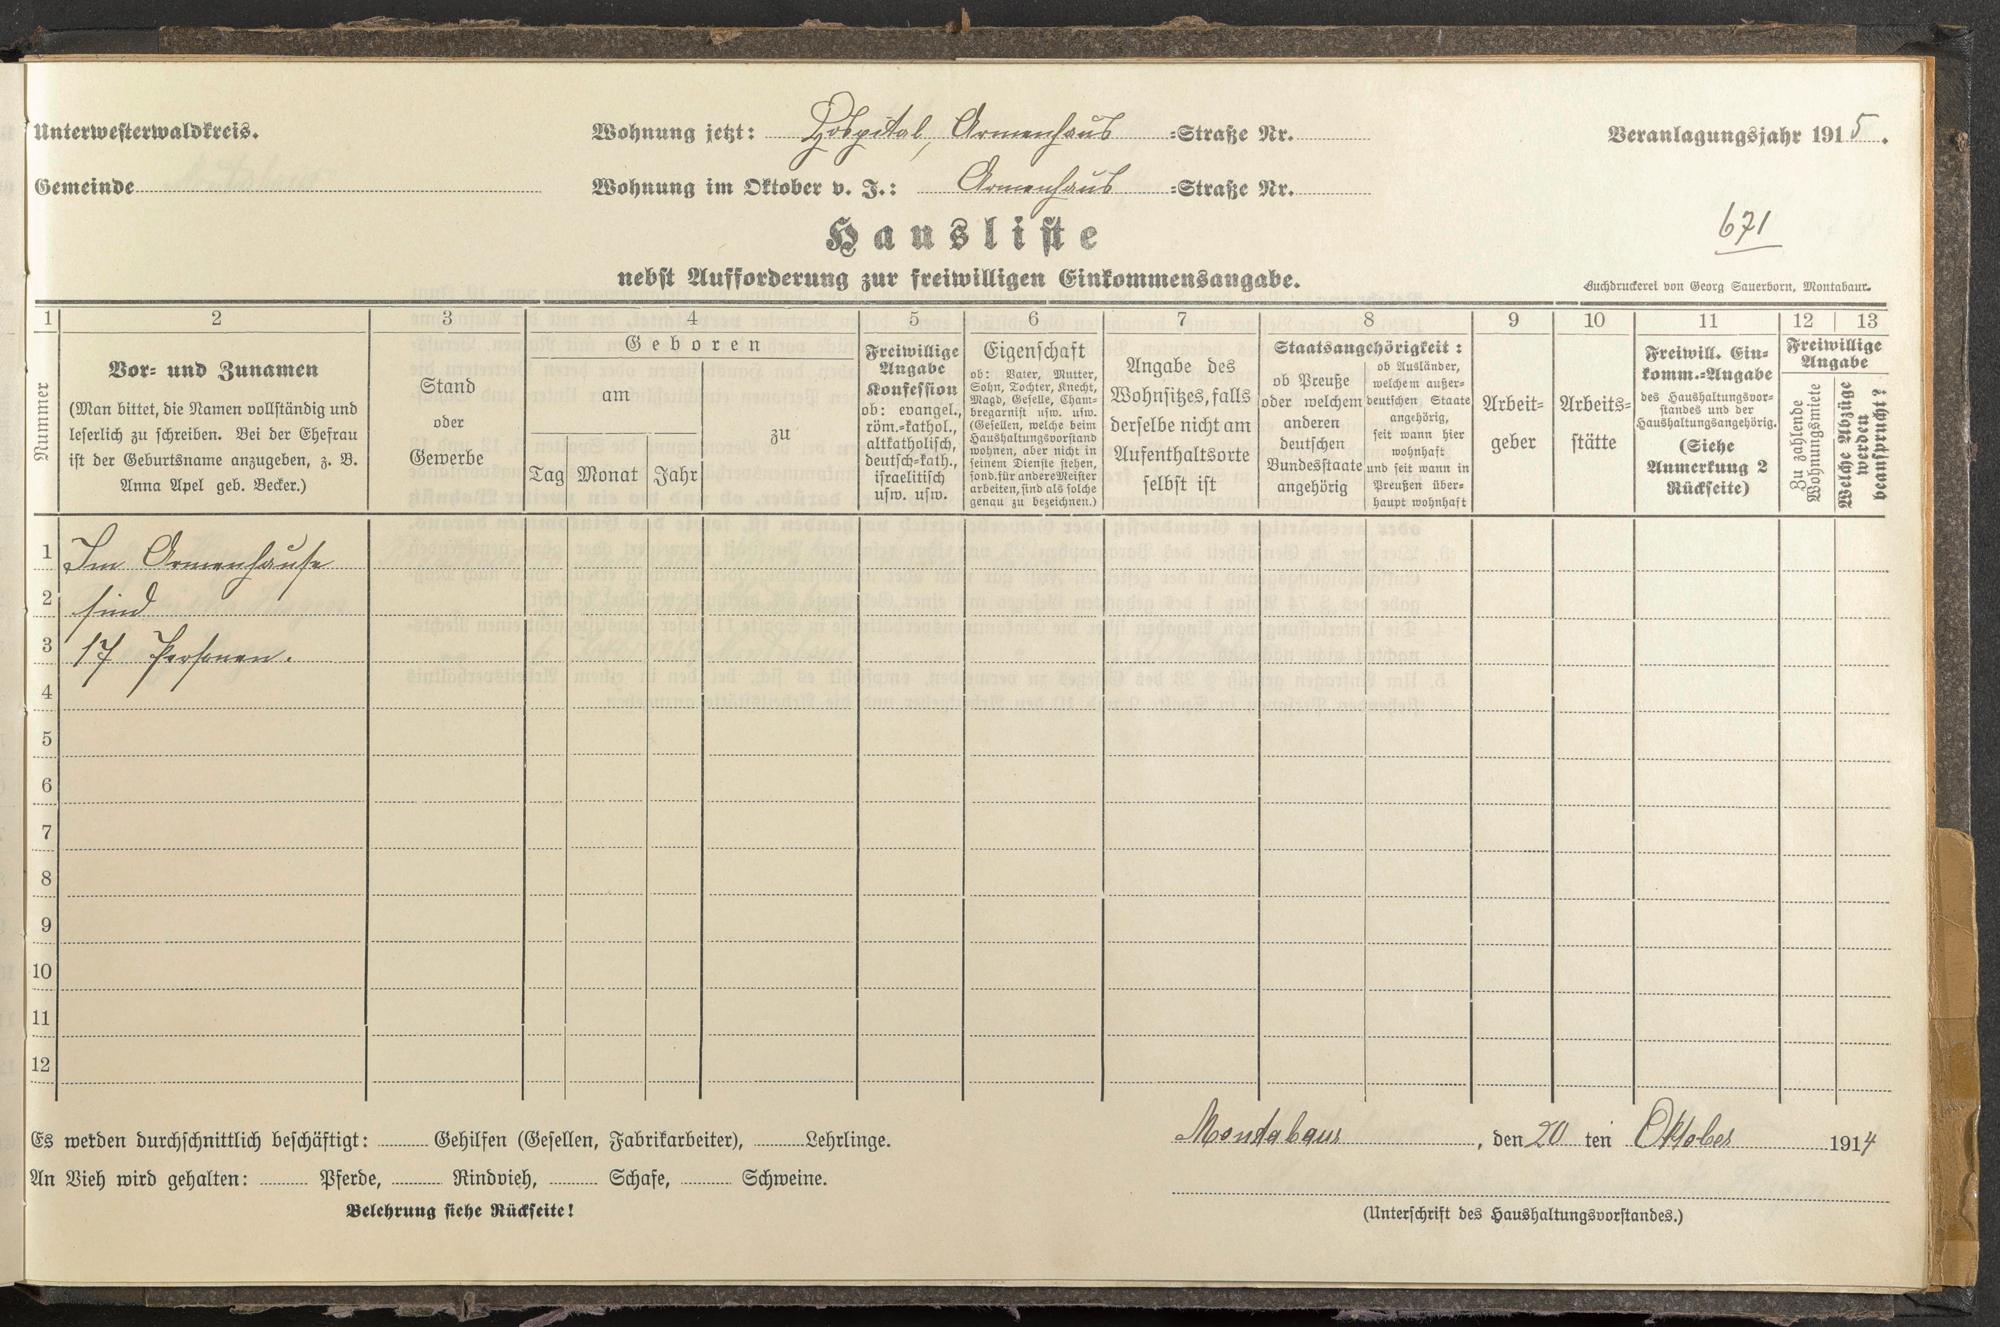 Unterwesterwaldkreis.
Wohnung jetzt: Hospital, Armenhaus =Straße Nr.
Veranlagungsjahr 1915.
Gemeinde
Wohnung im Oktober v. J.: Armenhaus =Straße Nr.
671
Hausliste
nebst Aufforderung zur freiwilligen Einkommensangabe.
Buchdruckerei von Georg Sauerborn, Montabaur.
1 2 3 4 5 6 7 8 9 10 11 12 13
Nummer
Vor- und Zunamen
(Man bittet, die Namen vollständig und
leserlich zu schreiben. Bei der Ehefrau
ist der Geburtsname anzugeben, z. B.
Anna Apel geb. Becker.)
Stand
oder
Gewerbe
Geboren
am
Tag Monat Jahr
zu
Freiwillige
Angabe
Konfession
ob: evangel.,
röm.-kathol.,
altkatholisch,
deutsch-kath.,
israelitisch
usw. usw.
Eigenschaft
ob: Vater, Mutter,
Sohn, Tochter, Knecht,
Magd, Geselle, Cham-
bregarnist usw. usw.
(Gesellen, welche beim
Haushaltungsvorstand
wohnen, aber nicht in
seinem Dienste stehen,
sond. für andere Meister
arbeiten, sind als solche
genau zu bezeichnen.)
Angabe des
Wohnsitzes, falls
derselbe nicht am
Aufenthaltsorte
selbst ist
Staatsangehörigkeit:
ob Preuße
oder welchem
anderen
deutschen
Bundesstaate
angehörig
ob Ausländer,
welchem außer-
deutschen Staate
angehörig,
seit wann hier
wohnhaft
und seit wann in
Preußen über-
haupt wohnhaft
Arbeit-
geber
Arbeits-
stätte
Freiwill. Ein-
komm.-Angabe
des Haushaltungsvor-
standes und der
Haushaltungsangehörig.
(Siehe
Anmerkung 2
Rückseite)
Freiwillige
Angabe
Zu zahlende
Wohnungsmiete
Welche Abzüge
werden
beansprucht?
1 Im Armenhause
2 sind
3 17 Personen.
4
5
6
7
8
9
10
11
12
Es werden durchschnittlich beschäftigt: Gehilfen (Gesellen, Fabrikarbeiter), Lehrlinge.
Montabaur, den 20 ten Oktober 1914
An Vieh wird gehalten: Pferde, Rindvieh, Schafe, Schweine.
Belehrung siehe Rückseite!
(Unterschrift des Haushaltungsvorstandes.)